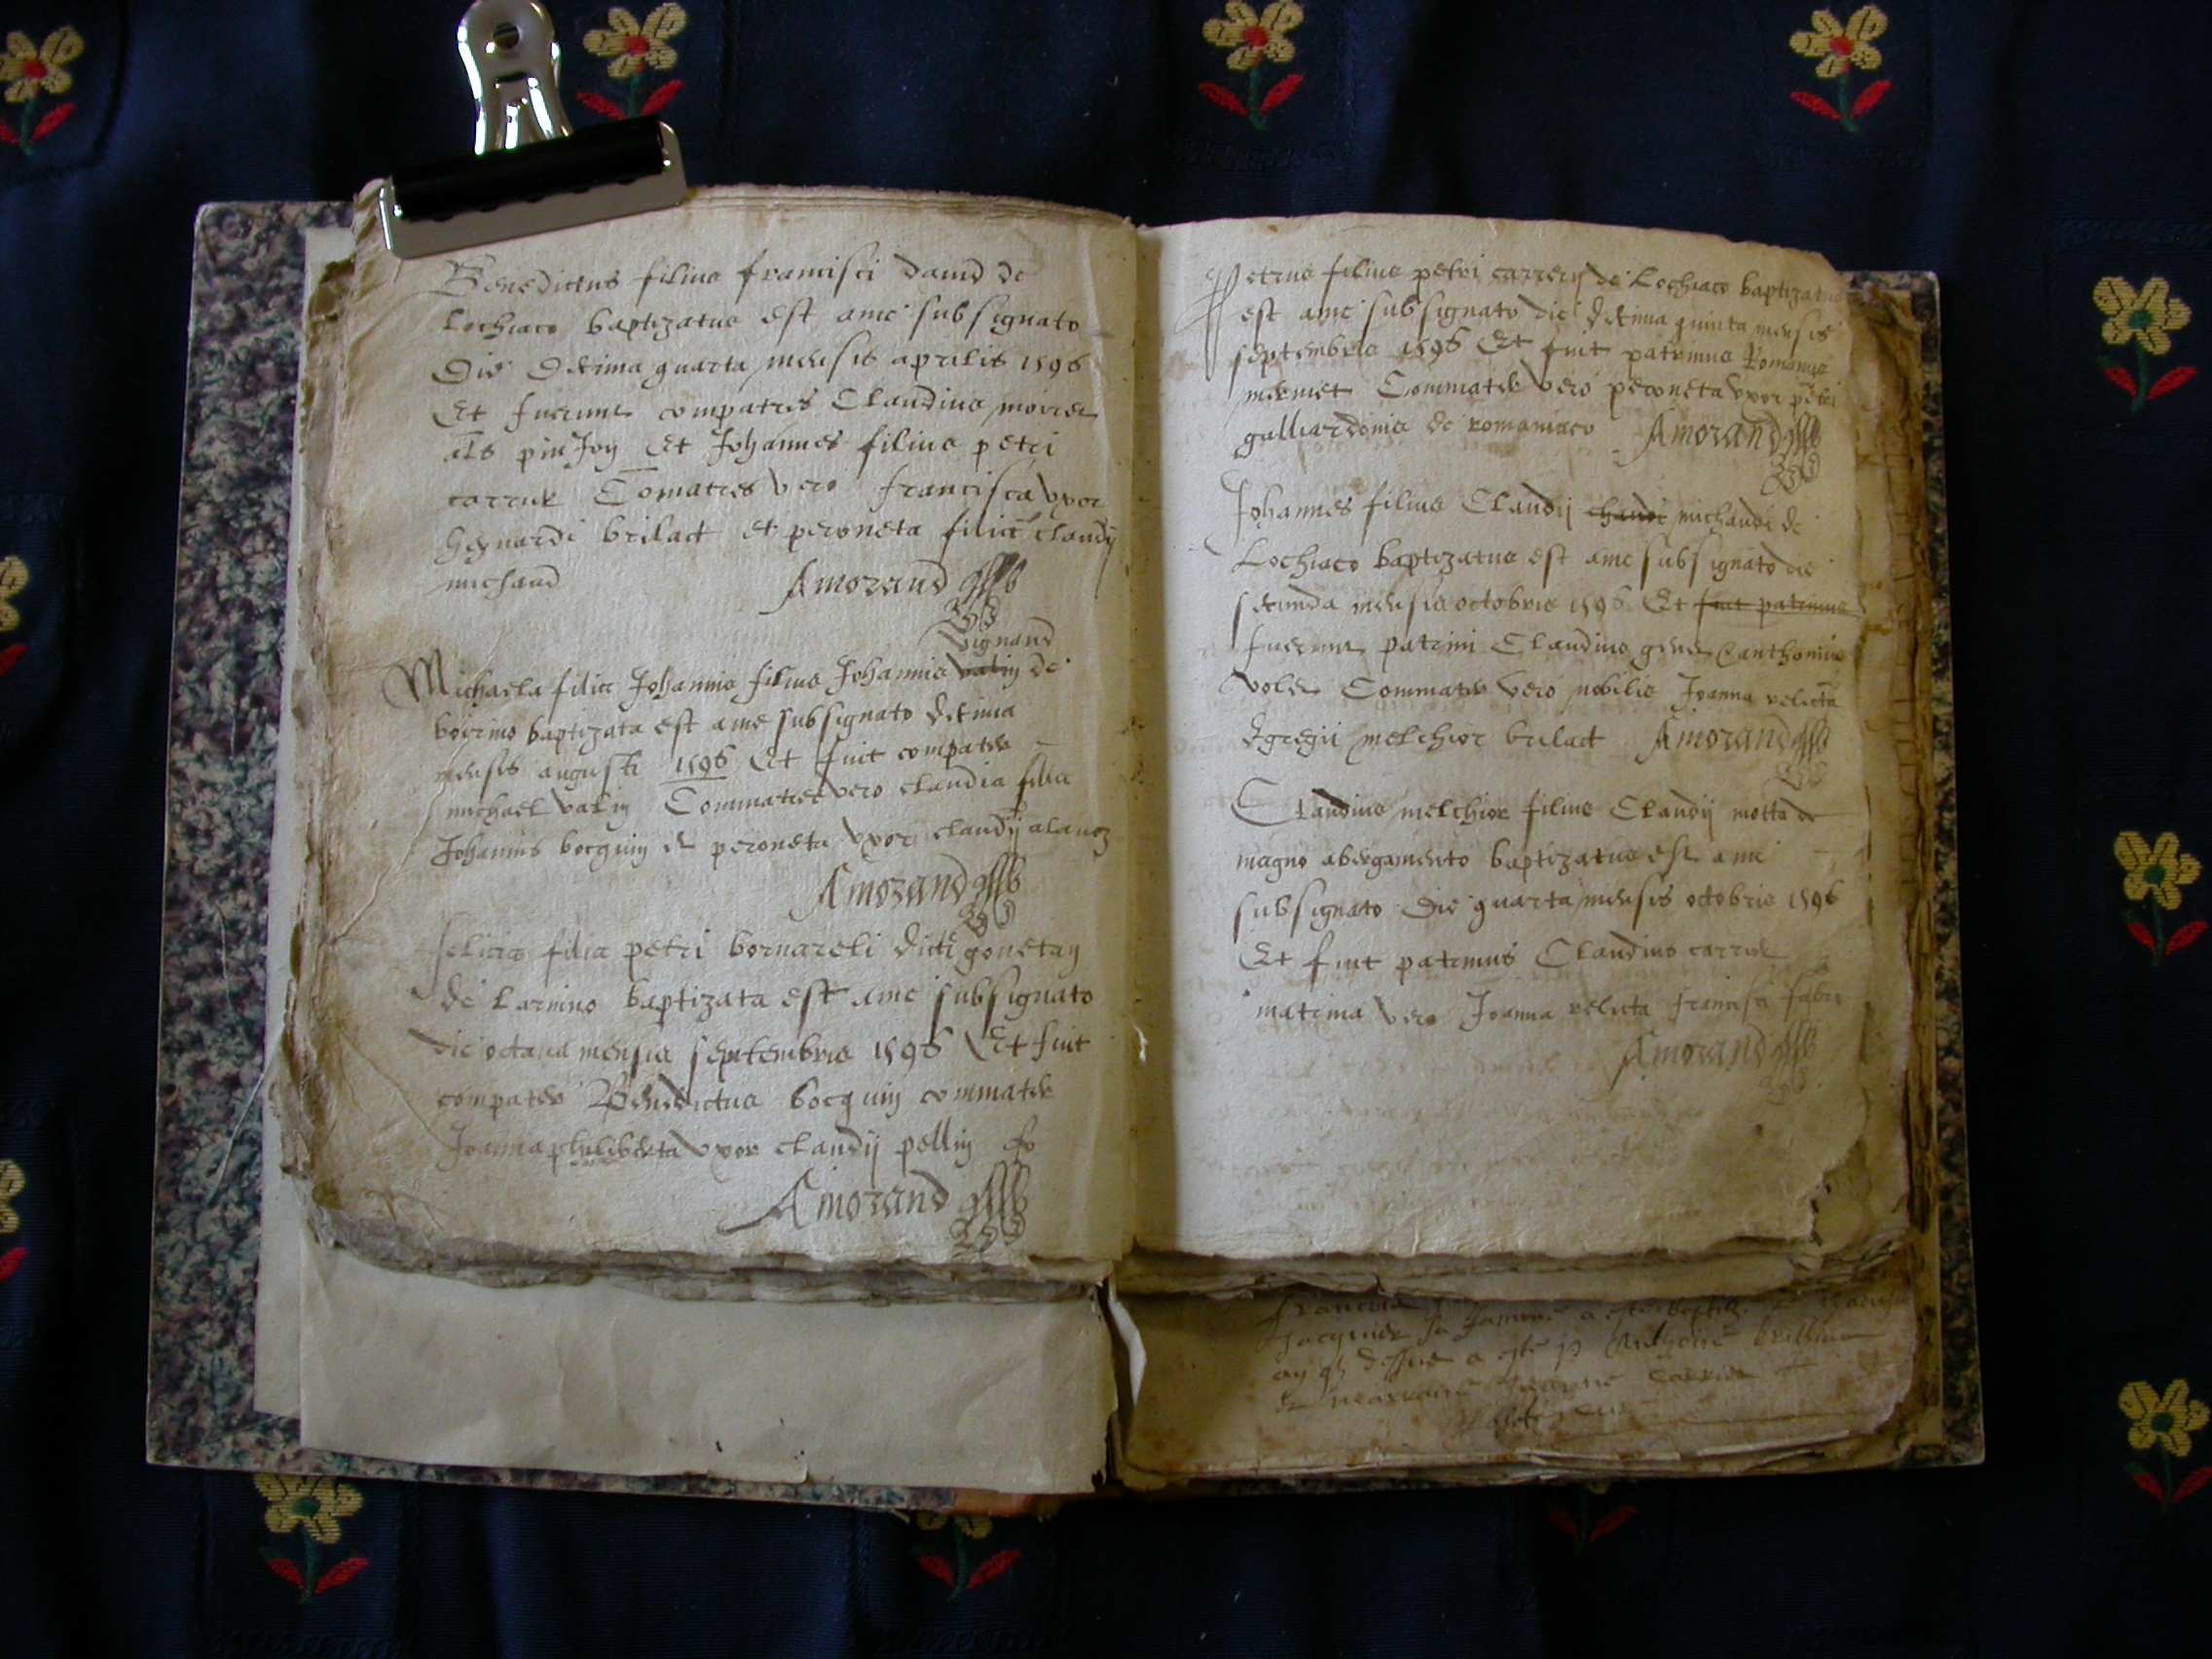 Benedictus filius francisci david de
Lochiaco baptizatus est a me subsignato
Die decima quarta mensis aprilis 1596
Et fuerunt compatres Claudius moirer
als pin Joy Et Johannes filius petri
carrier Comatres vero francisca uxor
Geynardi brilact et peroneta filia Claudij
michaud Amorand
vignand
Michaela filia Johannis filius Johannis de
boirino baptizata est a me subsignato decima
mensis augusti 1596 Et fuit compater
michael vatin Commatres vero claudia filia
Johannis bocquin et peroneta uxor claudij
Amorand
felicia filia petri bornareli dicti gonetan
de Larnino baptizata est a me subsignato
die octava mensis septembris 1596 Et fuit
compater Benedictus bocquin commater
Joanna philiberta uxor claudij pellin
Amorand
Petrus filius petri carrerij de Lochiaco baptizatus
est a me subsignato die decima quinta mensis
septembris 1596 Et fuit patrinus Romanus
mermet Commater vero peroneta uxor petri
galliardonis de romaniaco Amorand
Johannes filius Claudij michaudi de
Lochiaco baptizatus est a me subsignato die
secunda mensis octobris 1596 Et fuit patrinus
fuerunt patrini Claudius et anthonius
volet Commater vero nobilis Joanna relicta
Egregii melchior brilact Amorand
Claudius melchior filius Claudij motta de
magno abergamento baptizatus est a me
subsignato Die quarta mensis octobris 1596
Et fuit patrinus Claudius carrier
matrina vero Joanna relicta francisci fabri
Amorand
Jacquier sa famme a este
dessus a este p Anthoine
et marraine